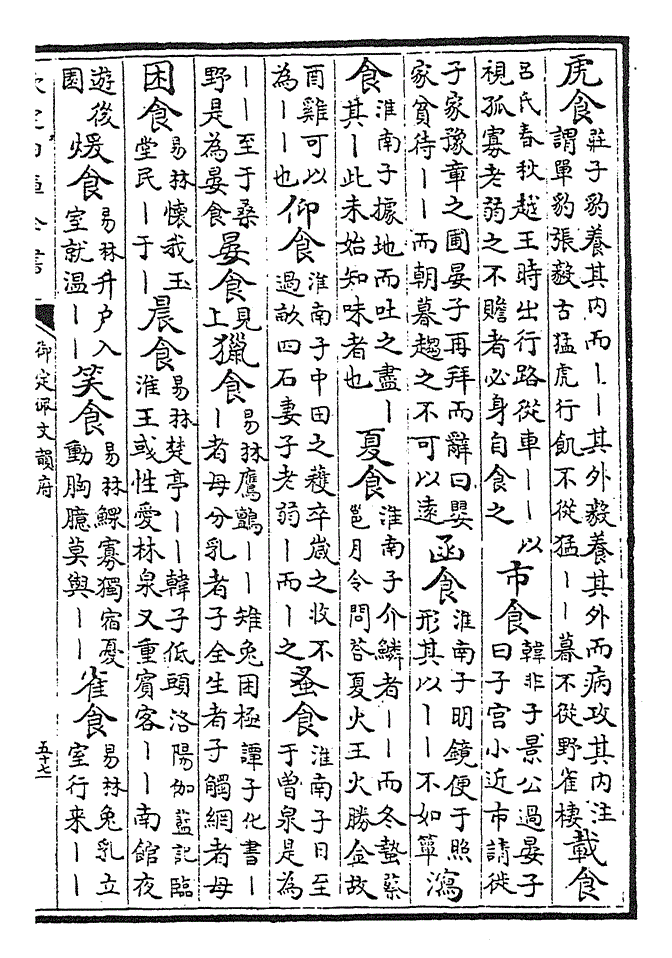 虎食莊子豹養其内而丨丨其外毅養其外而病攻其内注謂單豹張毅古猛虎行飢不從猛丨丨暮不從野雀棲載食
吕氏春秋越王時出行路從車丨丨以視孤寡老弱之不贍者必身自食之市食韓非子景公過晏子曰子宫小近市請徙
子家豫章之圃晏子再拜而辭曰嬰家貧待丨丨而朝暮趨之不可以遠函食淮南子明鏡便于照形其以丨丨不如簞瀉
食淮南子據地而吐之盡丨其丨此未始知味者也夏食淮南子介鱗者丨丨而冬蟄蔡邕月令問荅夏火王火勝金故
酉雞可以為丨丨也仰食淮南子中田之穫卒歲之收不過畝四石妻子老弱丨而丨之蚤食淮南子日至于曾泉是為
丨丨至于桑野是為晏食晏食見上獵食易林鷹鸇丨丨雉兔困極譚子化書丨丨者母分乳者子全生者子觸網者母
困食易林懷我玉堂民丨于丨晨食易林楚亭丨丨韓子低頭洛陽伽藍記臨淮王或性愛林泉又重賓客丨丨南館夜
遊後園煖食易林升户入室就温丨丨笑食易林鰥寡獨宿憂動胸臆莫與丨丨雀食易林兔乳立室行来丨丨
御定佩文韻府
五十七